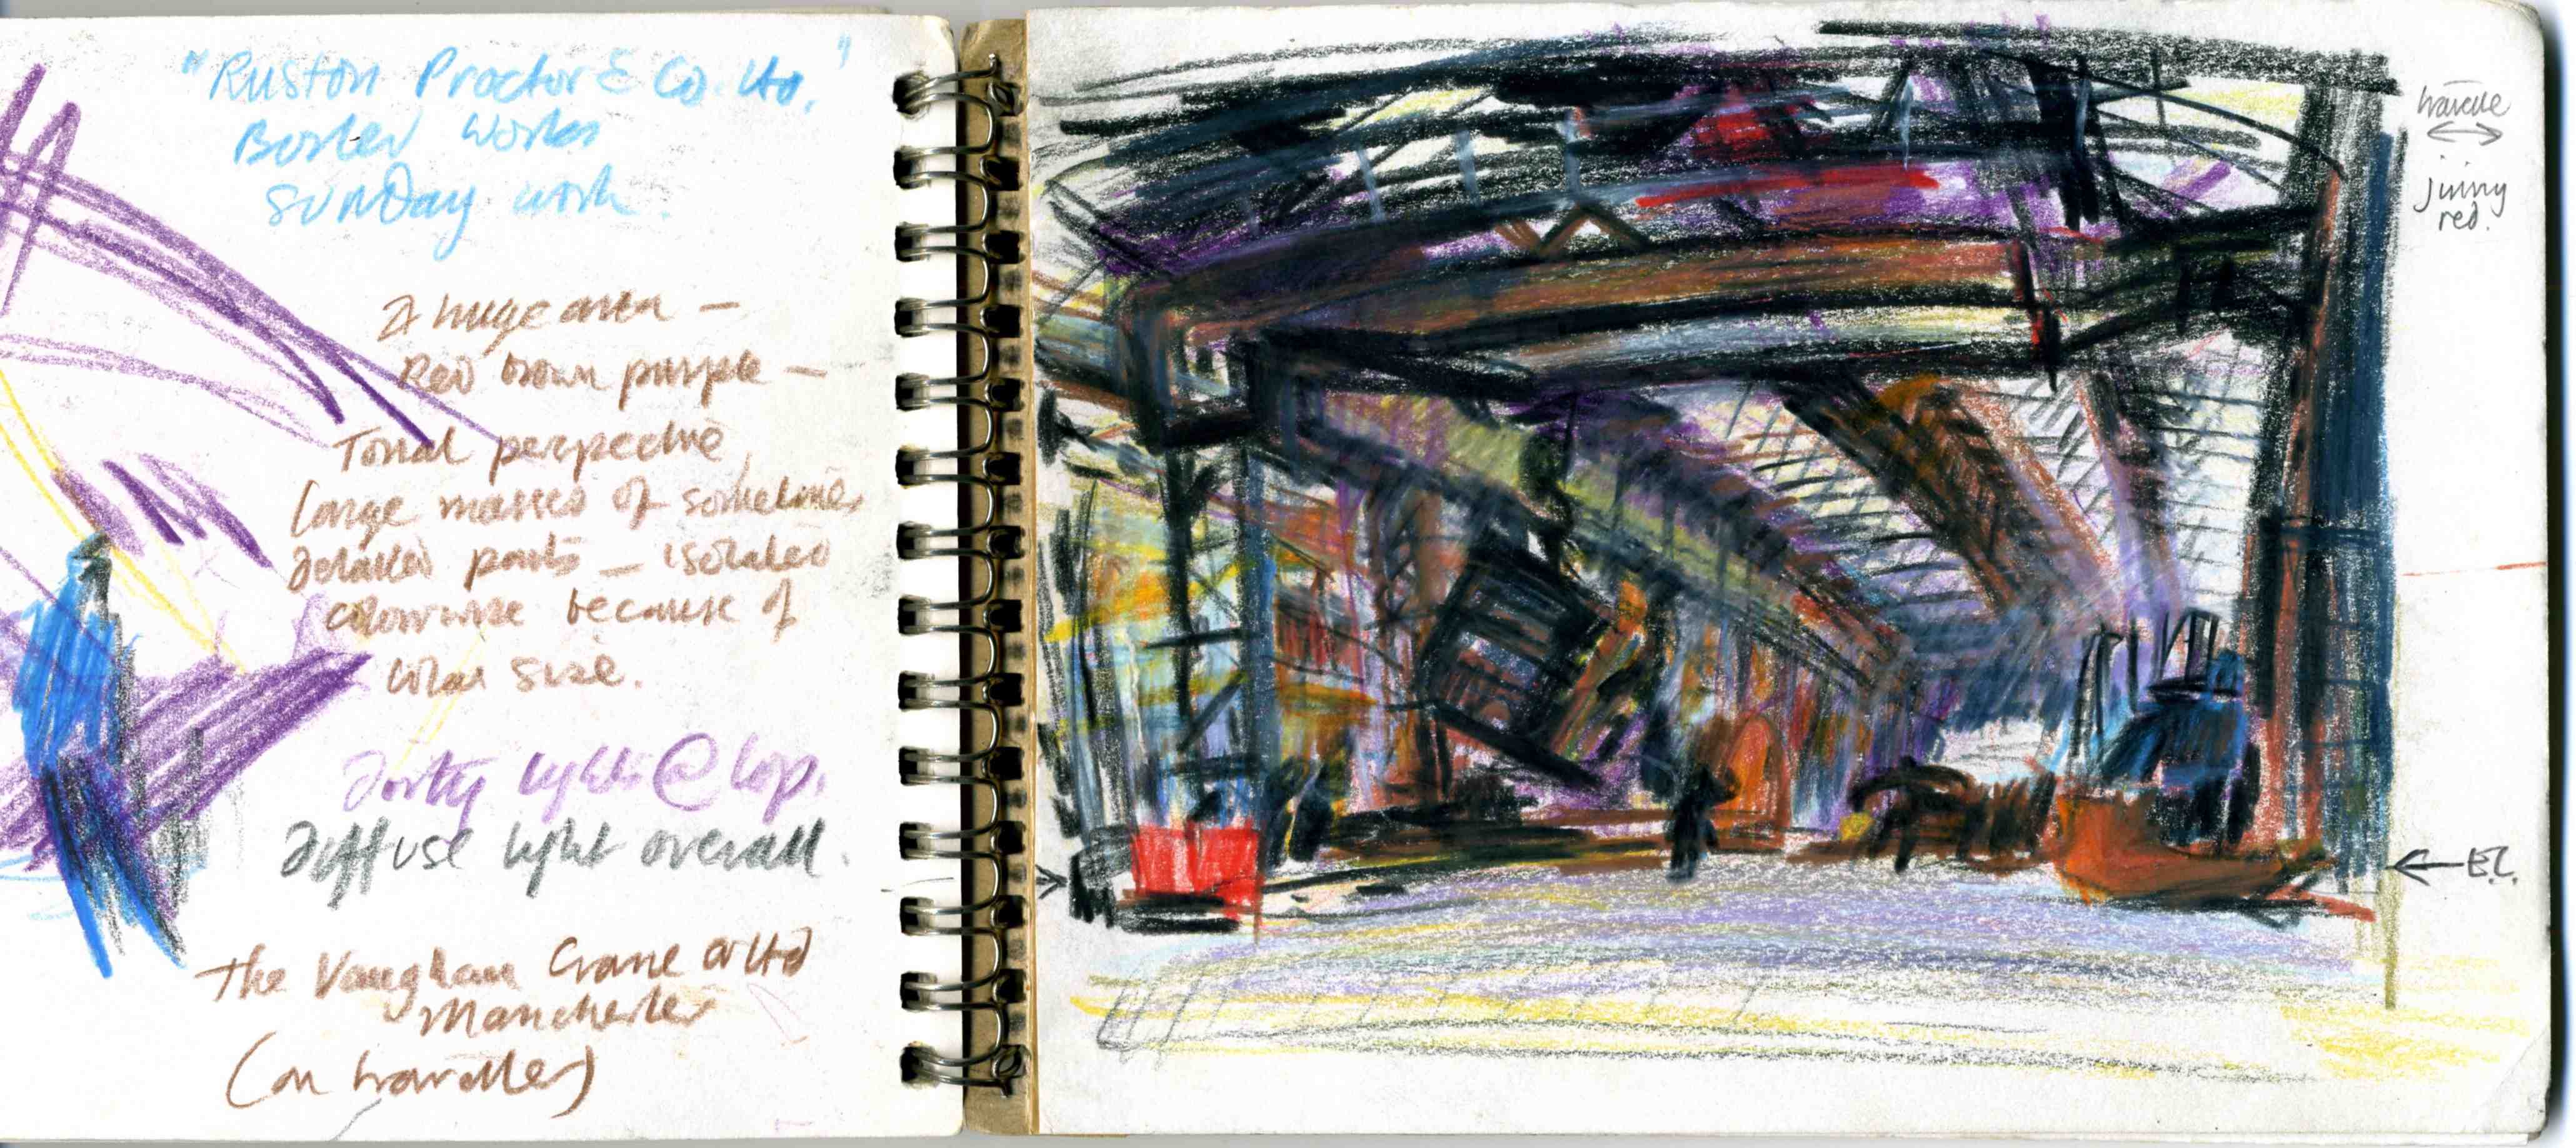 "Ruston Proctor & Co. Ltd."
Boiler Works
SUNDAY work.
A huge area —
Red brown purple —
Tonal perspective,
large masses of sometimes
detailed parts — isolated
colourwise because of
size.
Dirty lights @ top.
Diffuse light overall.
The Vaughan Crane Co Ltd
Manchester
(on traveller)
jinny
red.
E.L.